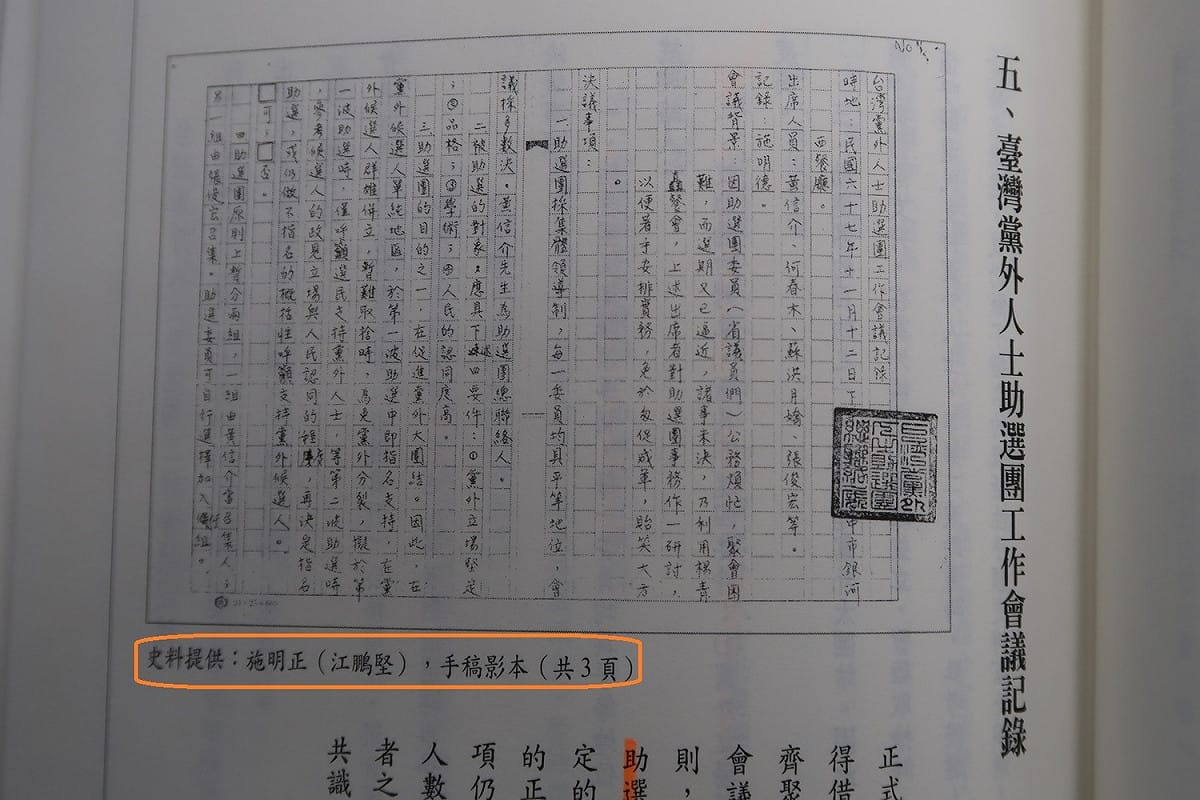 五、臺灣黨外人士助選團工作會議記錄
No 1/3
台灣黨外人士助選團工作會議記錄
時地：民國六十七年十一月十二日下
中市銀河
西餐廳。
出席人員：黃信介、何春木、蘇洪月嬌、張俊宏等。
記錄：施明德。
會議背景：因助選團委員（省議員們）公務煩忙，聚會困
難，而選期又已逼近，諸事未決，乃利用楊青
矗餐會，上述出席者對助選團事務作一研討，
以便著手安排實務，免於匆促成軍，貽笑大方
。
決議事項：
一、助選團採集體領導制，每一委員均具平等地位，會
議採多數決。黃信介先生為助選團總聯絡人。
二、被助選的對象，應具下述四要件：①黨外立場堅定
；②品格；③學術；④人民的認同度高。
三、助選團的目的之一，在促進黨外大團結。因此，在
黨外候選人單純地區，於第一波助選中即指名支持，在黨
外候選人群雄併立，暫難取捨時，為免黨外分裂，擬於第
一波助選時，僅呼籲選民支持黨外人士，等第二波助選時
，參考候選人的政見立場與人民認同的程度，再決定指名
助選，或仍做不指名的概括性呼籲支持黨外候選人。
□可，□否。
四、助選團原則上暫分兩組，一組由黃信介當召集人；
另一組由張俊宏召集。助選委員可自行選擇加入組。
史料提供：施明正（江鵬堅），手稿影本（共3頁）
正式
得借
齊聚
會議
則，
助選
定的
的正
項仍
人數
者之
共識